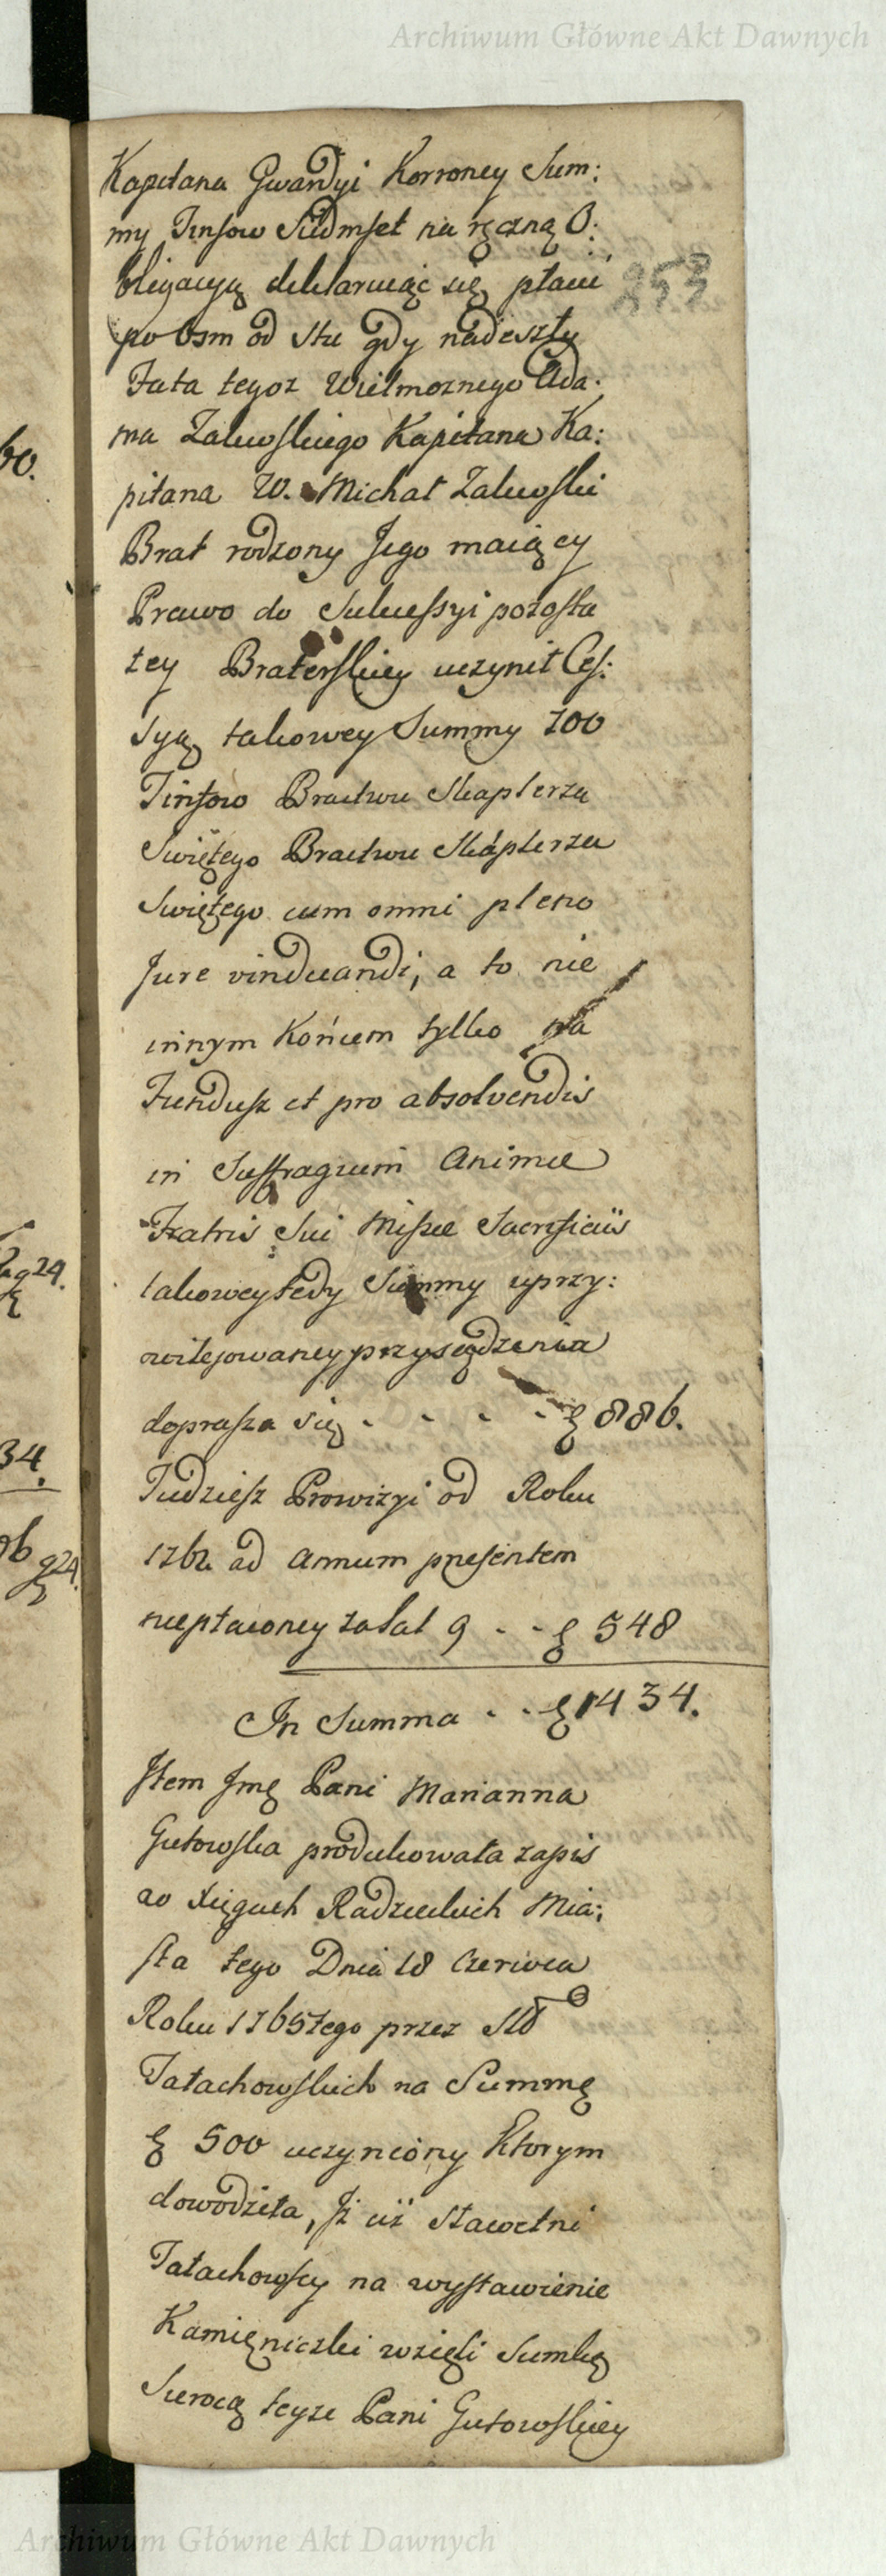 Archiwum Główne Akt Dawnych
Kapitana Gwardyi Korroney Sum:
my Tinfow Siedmset na ręczną O:
bligacyą deklaruiąc się płacić
253
po Osm od stu gdy nadeszły
Fata tegoz Wielmoznego Ada:
ma Zaluskiego Kapitana Ka:
pitana W. Michał Zaluski
Brat rodzony Jego maiący
Prawo do Sukcessyi pozosta
łey Braterskiey uczynił Ces:
syą takowey Summy 700
Tinfow Bractwu Skaplerza
Swiętego Bractwu Skaplerza
Swiętego cum omni pleno
Jure vindicandi, a to nie
innym Końcem tylko na
Fundusz et pro absolvendis
in Suffragium Animae
Fratris Sui Missae Sacrificiis
takowey tedy Summy uprzy:
wilejowaney przysądzenia
doprasza się - - - - ƺ 886.
Tudziesz Prowizyi od Roku
1762 ad Annum presentem
niepłaconey za lat 9 - - ƺ 548
In Summa - - ƺ 1434.
Item Jmę Pani Marianna
Gutowska produkowała zapis
w Xięgach Radzieckich Mia:
sta tego Dnia 18 Czerwca
Roku 1765tego przez Sld
Tatachowskich na Summę
ƺ 500 uczyniony Ktorym
dowodziła, Jż ciż Sławetni
Tatachowscy na wystawienie
Kamięniczki wzięli Sumkę
Sierocą teyze Pani Gutowskiey
60.
g24.
34.
g24.
Archiwum Główne Akt Dawnych